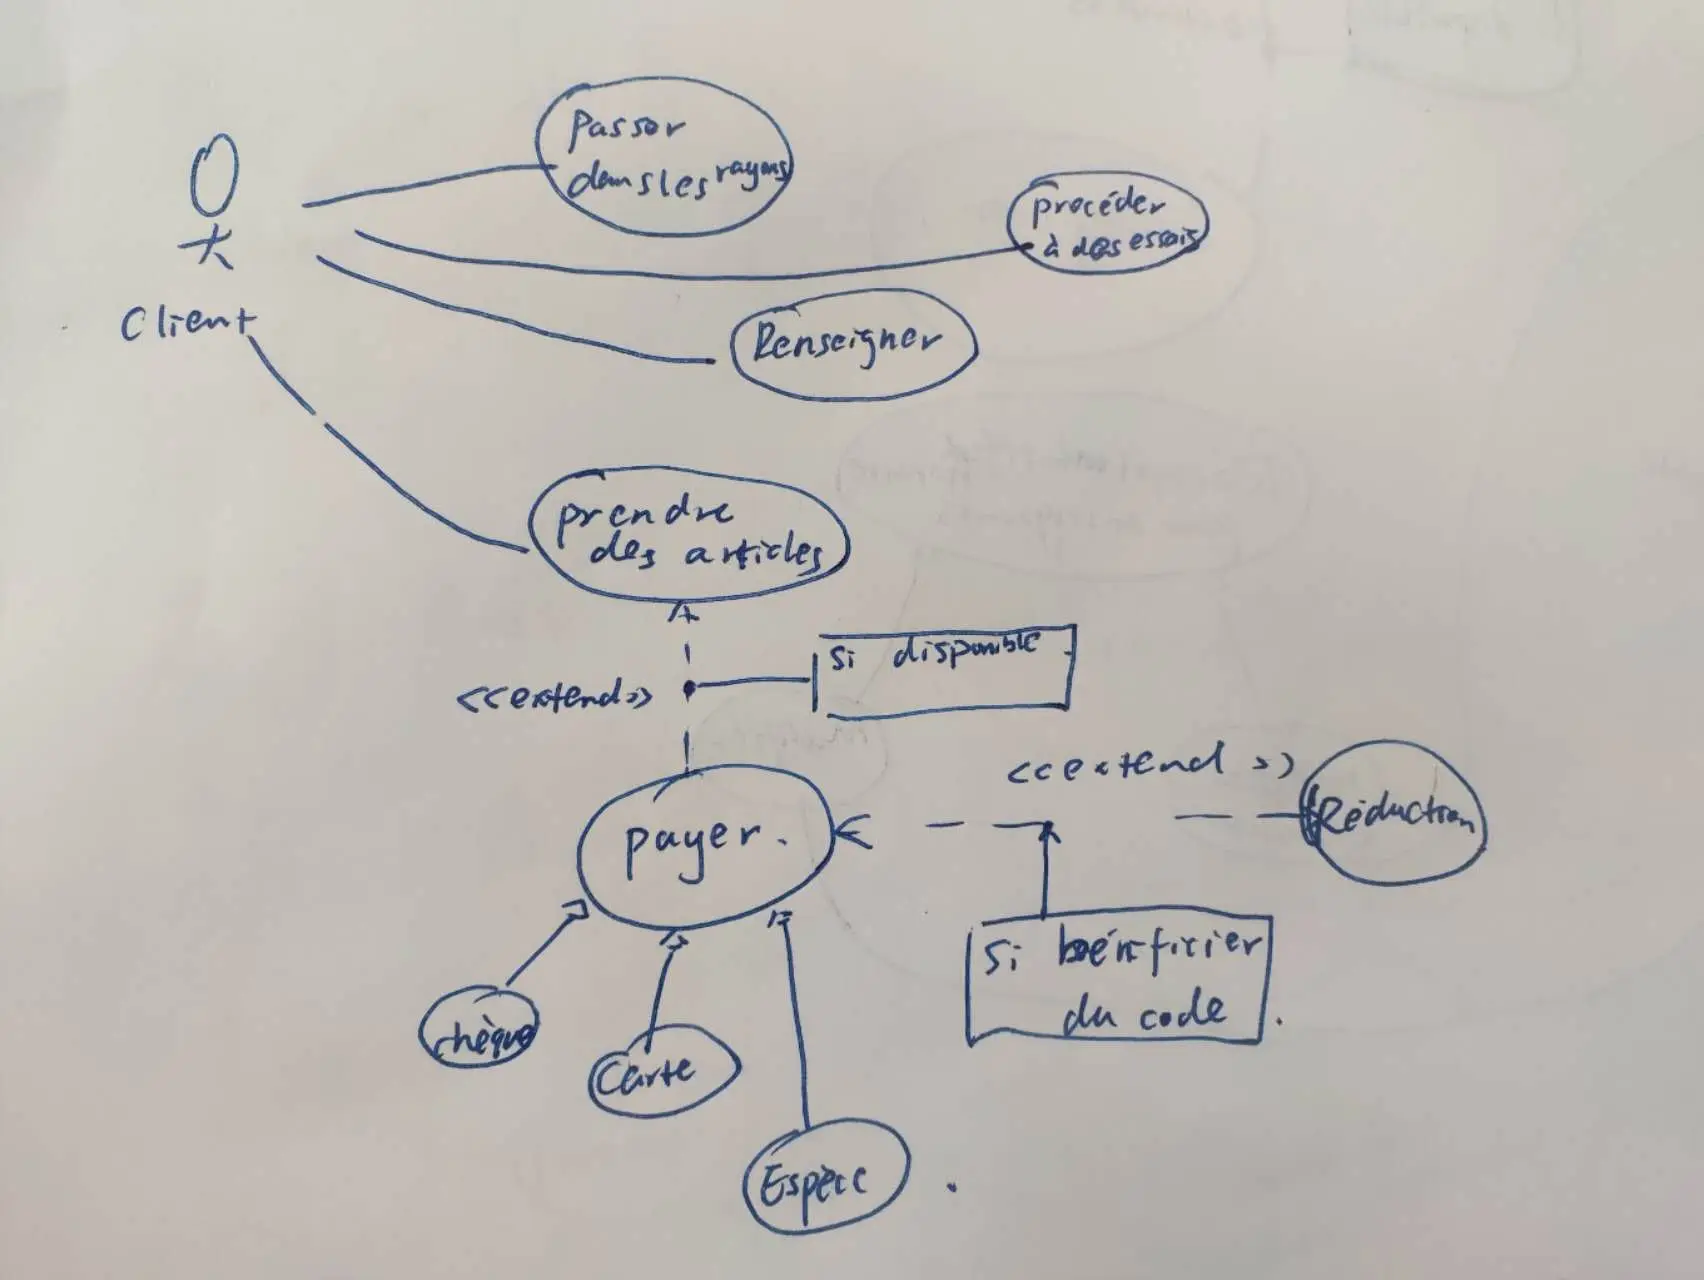 Passer
dans les rayons
procéder
à des essais
Client
Renseigner
prendre
des articles
Si disponible
<<extend>>
<<extend>>
Réduction
payer.
Si bénéficier
du code.
chèque
Carte
Espèce